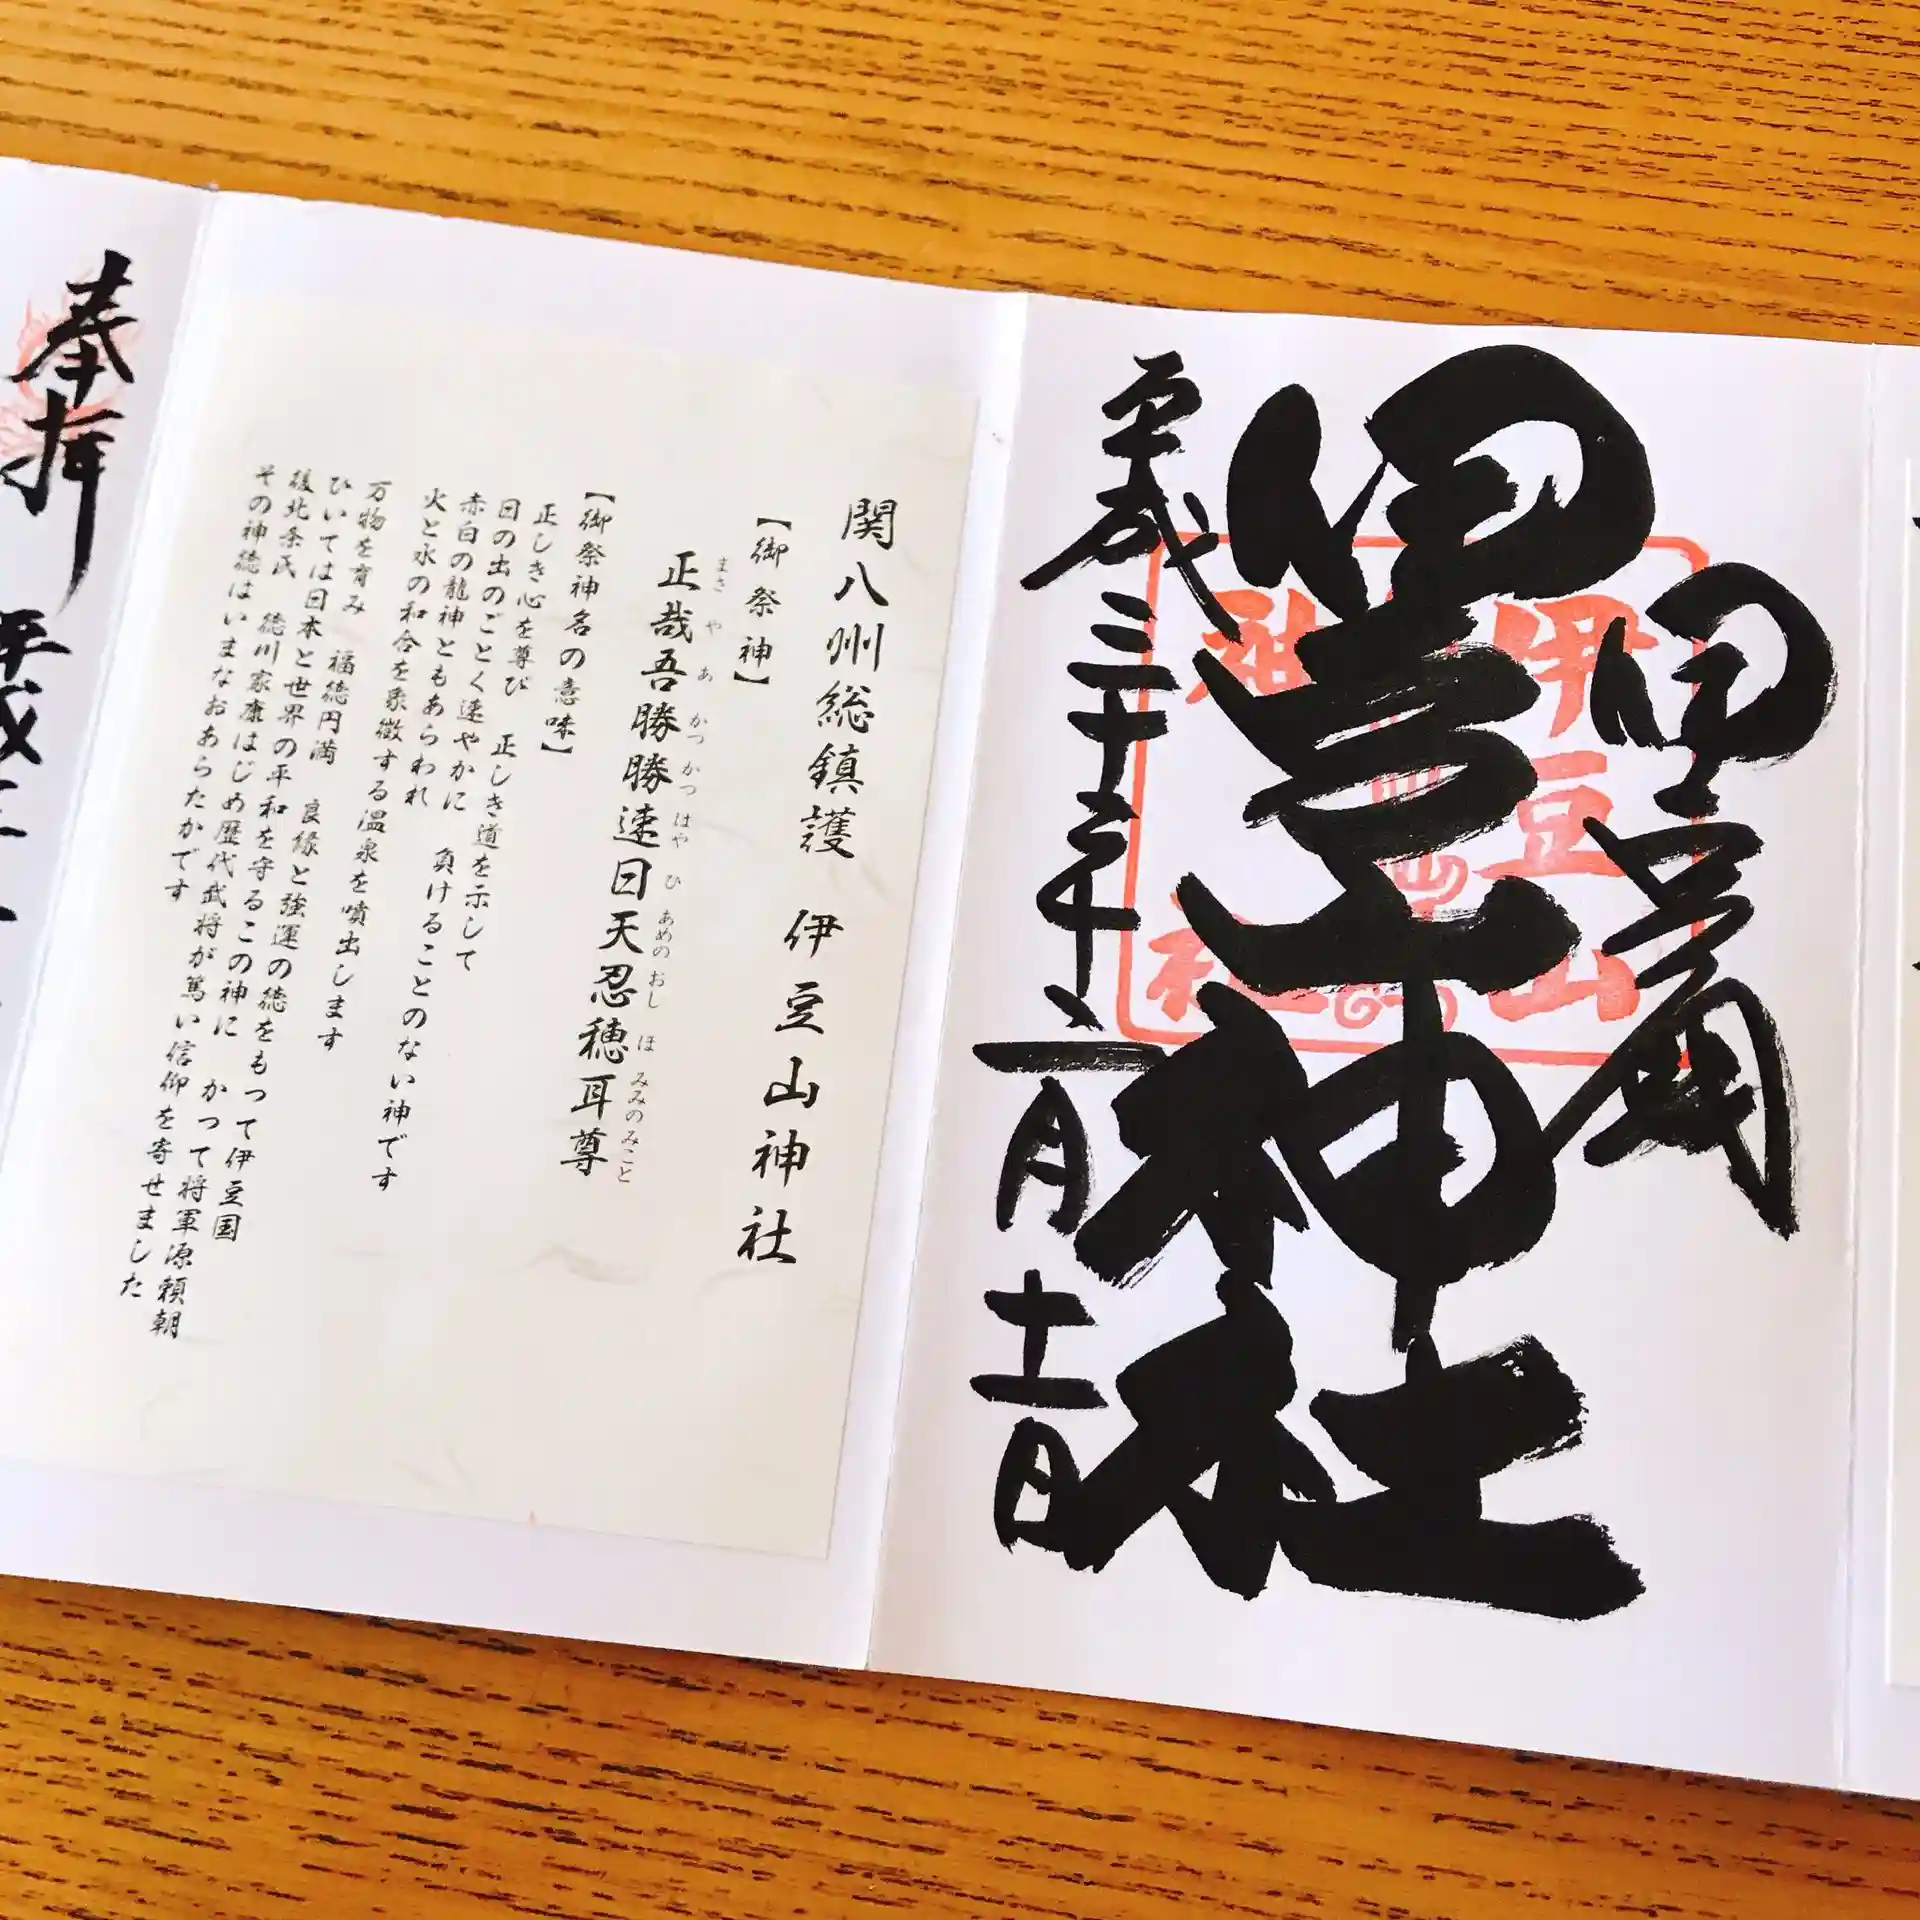 伊豆山神社
伊豆山
神社
平成三十年二月十一日
関八州総鎮護　伊豆山神社
【御祭神】
正哉吾勝勝速日天忍穂耳尊
まさ や あ かつ かつ はや ひ あめの おし ほ みみのみこと
【御祭神名の意味】
正しき心を尊び　正しき道を示して
日の出のごとく速やかに　負けることのない神です
赤白の龍神ともあらわれ
火と水の和合を象徴する温泉を噴出します
万物を育み　福徳円満　良縁と強運の徳をもって伊豆国
ひいては日本と世界の平和を守るこの神に　かつて将軍源頼朝
後北条氏　徳川家康はじめ歴代武将が篤い信仰を寄せました
その神徳はいまなおあらたかです
奉拝
平成三